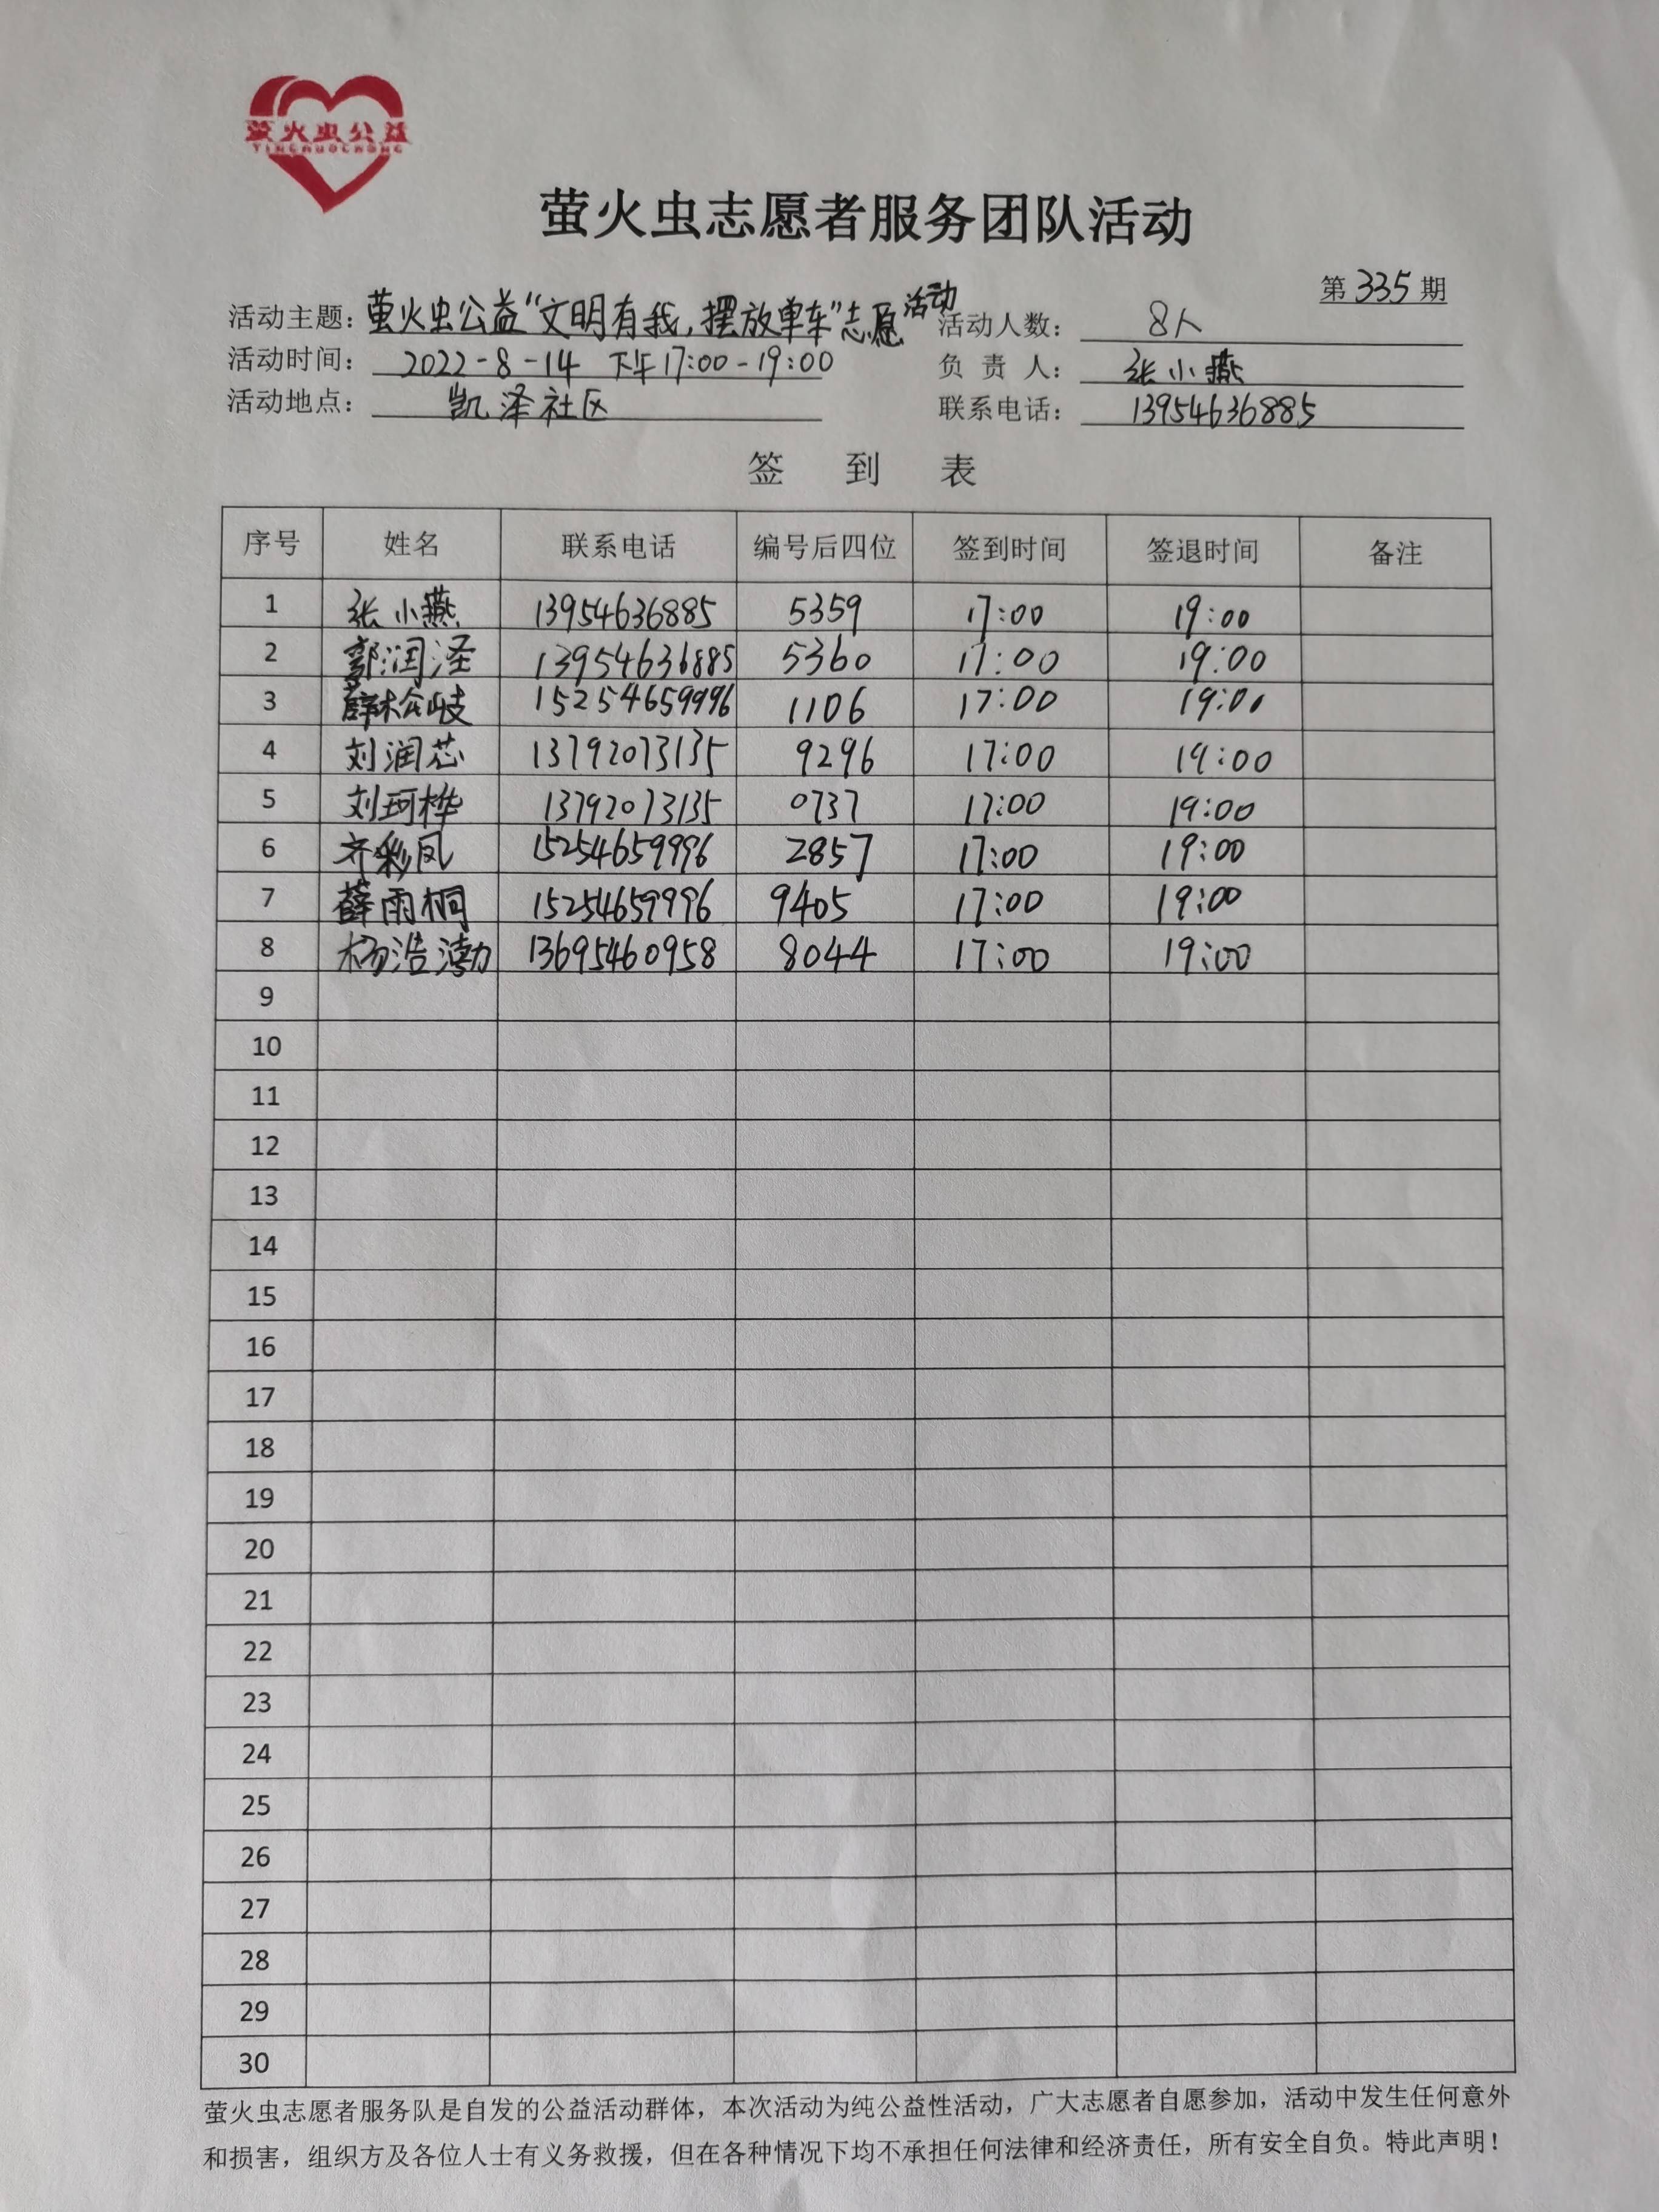 萤火虫公益
YINGHUOCHONG
萤火虫志愿者服务团队活动
第335期
活动主题：萤火虫公益“文明有我，摆放单车”志愿活动 活动人数：8人
活动时间：2022-8-14 下午17:00-19:00 负责人：张小燕
活动地点：凯泽社区 联系电话：13954636885
签到表
序号 姓名 联系电话 编号后四位 签到时间 签退时间 备注
1 张小燕 13954636885 5359 17:00 19:00
2 郭润泽 13954636885 5360 17:00 19:00
3 薛松岐 15254659996 1106 17:00 19:00
4 刘润芯 13792073135 9296 17:00 19:00
5 刘珂桦 13792073135 0737 17:00 19:00
6 齐彩凤 15254659996 2857 17:00 19:00
7 薛雨桐 15254659996 9405 17:00 19:00
8 杨浩渤 13695460958 8044 17:00 19:00
9
10
11
12
13
14
15
16
17
18
19
20
21
22
23
24
25
26
27
28
29
30
萤火虫志愿者服务队是自发的公益活动群体，本次活动为纯公益性活动，广大志愿者自愿参加，活动中发生任何意外
和损害，组织方及各位人士有义务救援，但在各种情况下均不承担任何法律和经济责任，所有安全自负。特此声明！